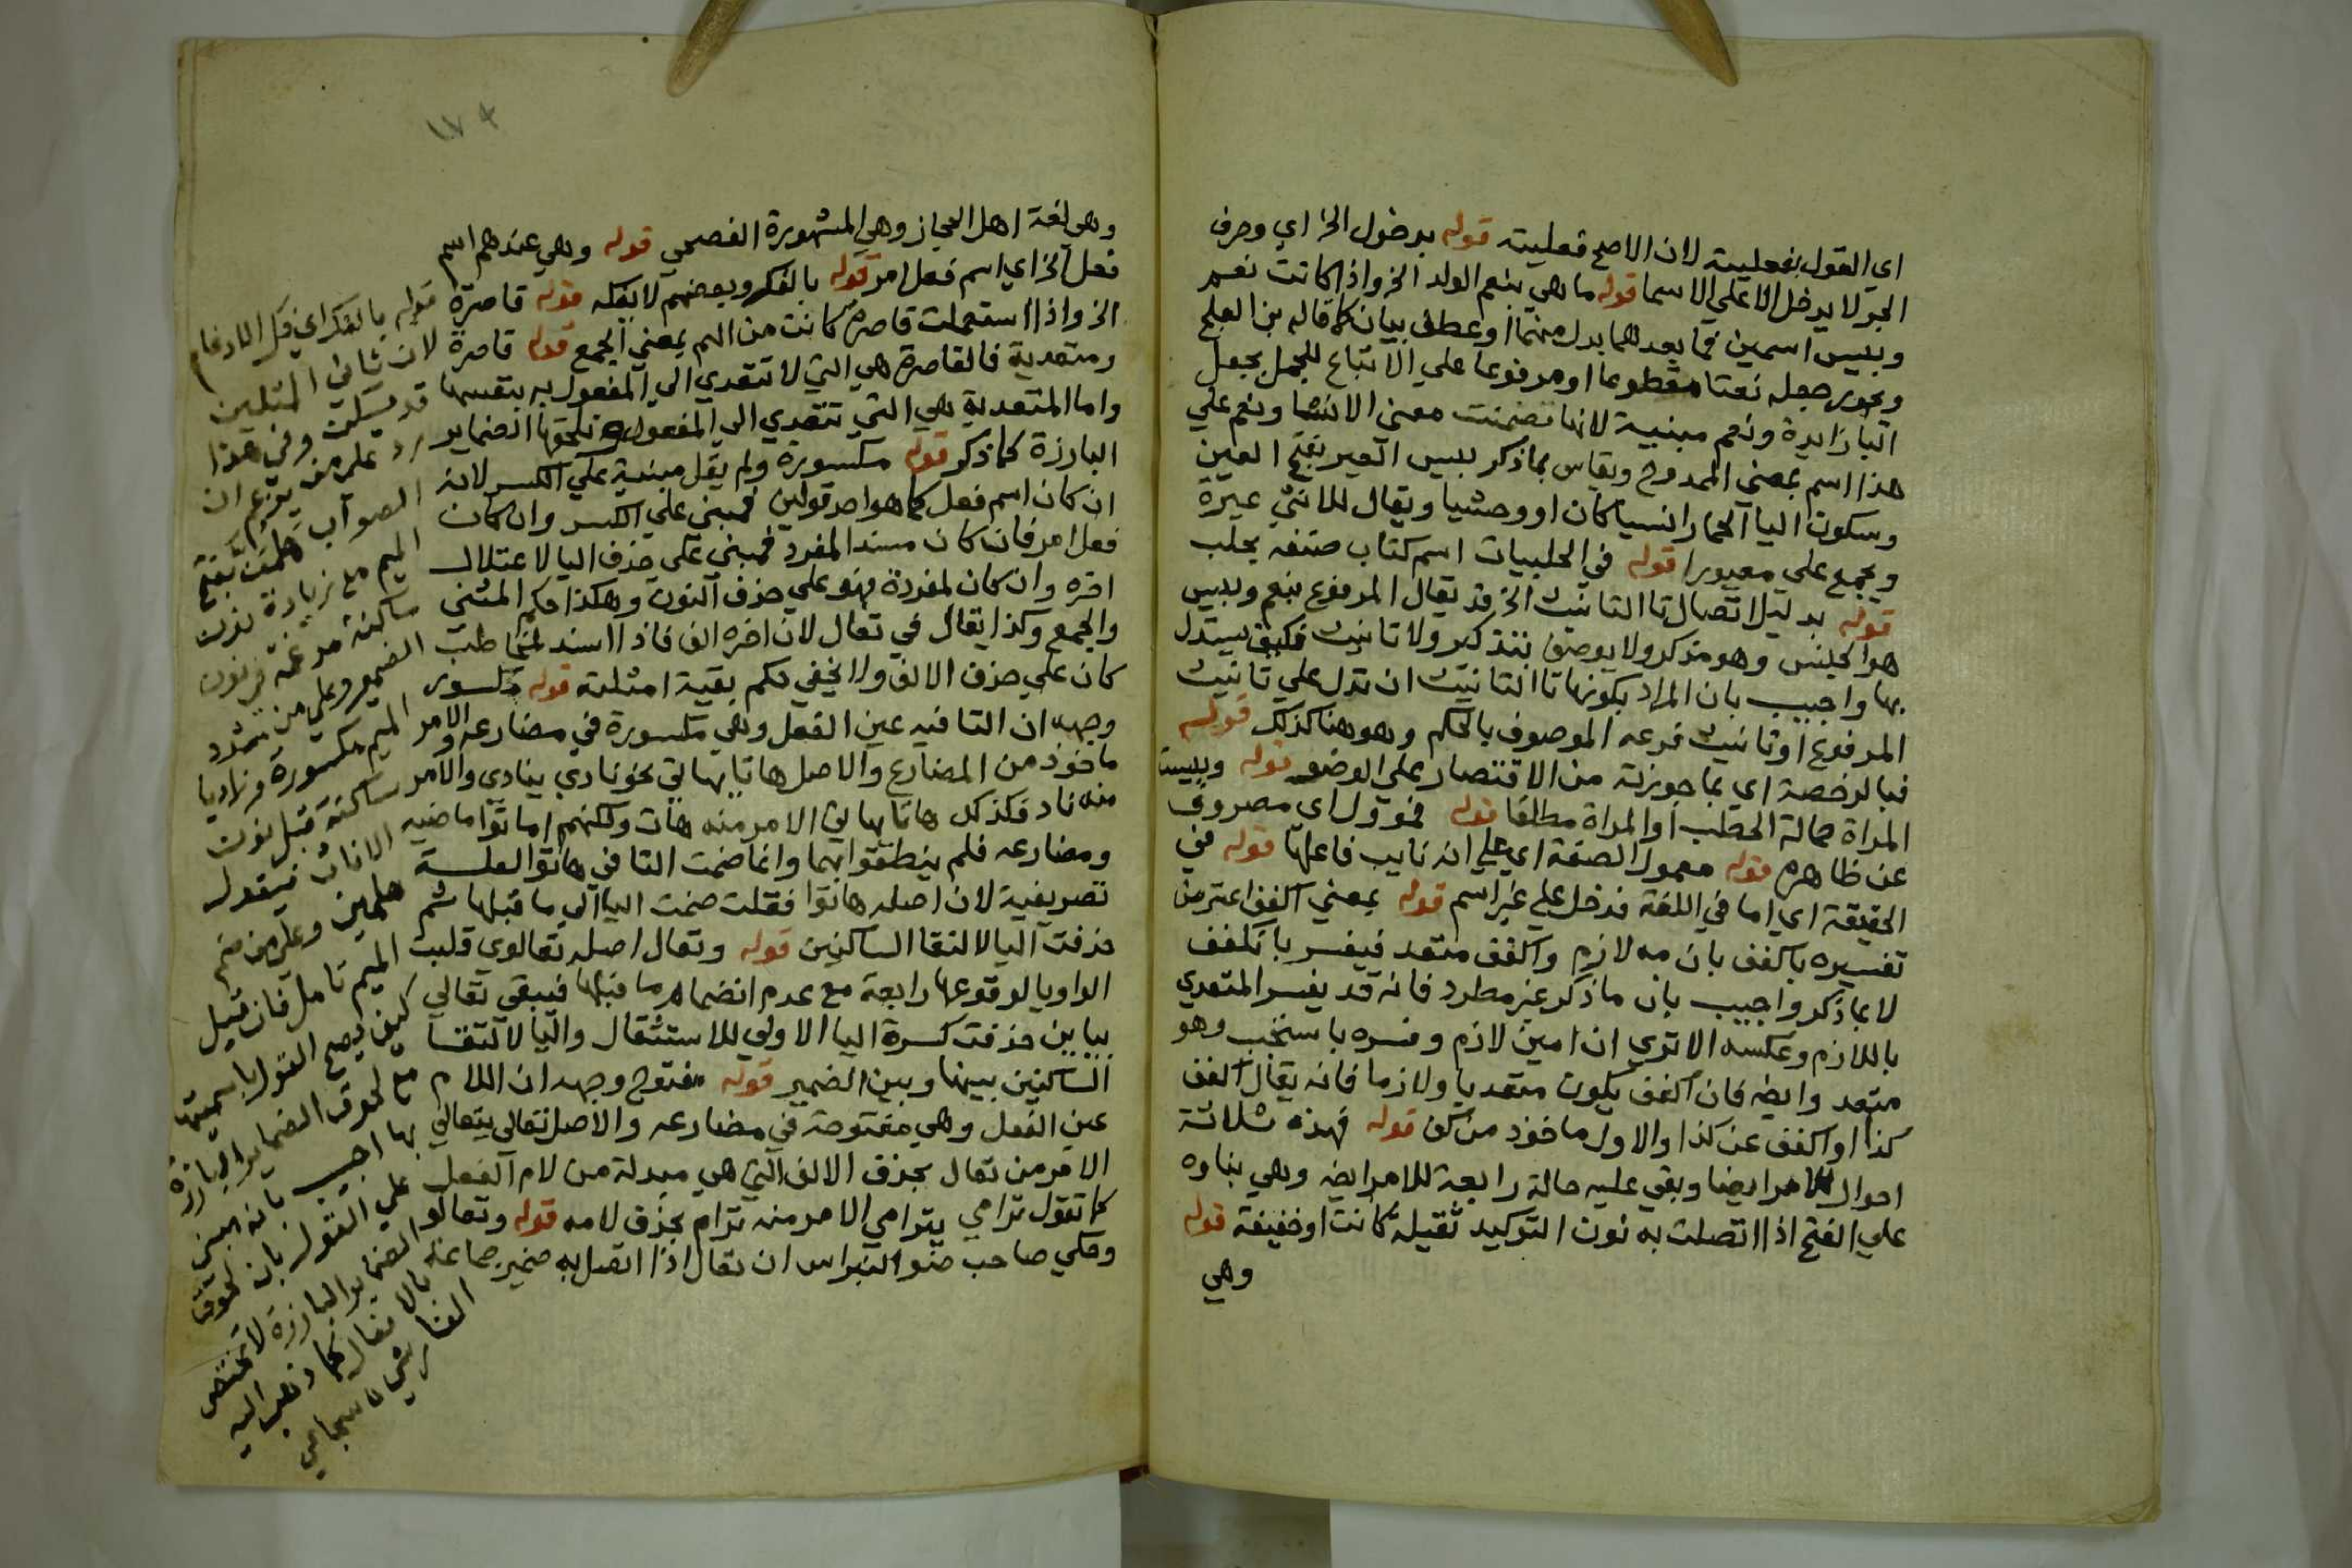 اي القول بفعليته لان الاصح فعليته قوله بدخول الخ اي وحرف
الجر لا يدخل الا علي الاسما قوله ما هي بنعم الولد الخ واذا كانت نعم
وبيس اسمين فما بعدهما بدل منهما او عطف بيان كما قاله بن العلج
ويجوز جعله نعتا مقطوعا او مرفوعا علي الاتباع للمحل بجعل
البا زايدة ونعم مبنية لانها تضمنت معني الانشا ونعم علي
هذا اسم بمعني الممدوح ويقاس بما ذكر بيس العير بفتح العين
وسكون اليا الحمار انسيا كان او وحشيا ويقال للانثي عيرة
ويجمع علي معيورا قوله في الحلبيات اسم كتاب صنفه بحلب
قوله بدليل اتصال تا التانيث الخ قد يقال المرفوع بنعم وبيس
هو الجنس وهو مذكر ولا يوصف بتذكير ولا تانيث فكيف يستدل
بها واجيب بان المراد بكونها تا التانيث ان تدل علي تانيث
المرفوع او تانيث فرعه الموصوف بالحكم وهو هنا كذلك قوله
فبالرخصة اي بما جوزته من الاقتصار علي الوضو قوله وبيست
المراة حمالة الحطب او المراة مطلقا قوله فموول اي مصروف
عن ظاهره قوله معمول الصفة اي علي انه نايب فاعلها قوله في
الحقيقة اي اما في اللغة فدخل علي غير اسم قوله بمعني اكفف اعترض
تفسيره باكفف بان مه لازم واكفف متعد فيفسر بانكفف
لا بما ذكر واجيب بان ما ذكر غير مطرد فانه قد يفسر المتعدي
باللازم وعكسه الا تري ان امين لازم وفسره باستجب وهو
متعد وايضه فان اكفف يكون متعديا ولازما فانه يقال اكفف
كذا او اكفف عن كذا والاول ماخوذ من كف قوله فهذه ثلاثة
احوال للامر ايضا وبقي عليه حالة رابعة للامر ايضه وهي بناوه
علي الفتح اذا اتصلت به نون التوكيد ثقيلة كانت او خفيفة قوله
وهي
١٧٤
وهي لغة اهل الحجاز وهي المشهورة الفصحي قوله وهي عندهم اسم
فعل الخ اي اسم فعل امر قوله بالفك وبعضهم لا يفكه قوله قاصرة
الخ واذا استعملت قاصرة كانت من الهم بمعني الجمع قوله قاصرة
ومتعدية فالقاصرة هي التي لا تتعدي الي المفعول به بنفسها
واما المتعدية هي التي تتعدي الي المفعول وتلحقها الضماير
البارزة كما ذكر قوله مكسورة ولم يقل مبنية علي الكسر لانه
ان كان اسم فعل كما هو احد قولين فمبني علي الكسر وان كان
فعل امر فان كان مسند المفرد فمبني علي حذف اليا لاعتلال
اخره وان كان لمفردة فهو علي حذف النون وهكذا حكم المثني
والجمع وكذا يقال في تعال لان اخره الف فاذا اسند لمخاطب
كان علي حذف الالف ولا يخفي حكم بقية امثلته قوله مكسور
وجهه ان التا فيه عين الفعل وهي مكسورة في مضارعه والامر
ماخوذ من المضارع والاصل هاتا يهاتي نحو نادي ينادي والامر
منه ناد فكذلك هاتا يهاتي الامر منه هات ولكنهم اماتوا ماضيه
ومضارعه فلم ينطقوا بهما وانما ضمت التا في هاتوا لعلة
تصريفية لان اصله هاتوا فنقلت ضمت اليا الي ما قبلها ثم
حذفت اليا لالتقا الساكنين قوله وتعال اصله تعالوي قلبت
الواو يا لوقوعها رابعة مع عدم انضمام ما قبلها فبقي تعالي
بيايين حذفت كسرة اليا الاولي للاستثقال واليا لالتقا
الساكنين بينها وبين الضمير قوله مفتوح وجهه ان اللام
عين الفعل وهي مفتوحة في مضارعه والاصل تعالي يتعالي
الامر من تعال بحذف الالف التي هي مبدلة من لام الفعل
كما تقول ترامي يترامي الامر منه ترام بحذف لامه قوله وتعالوا
وحكي صاحب ضو النبراس ان تعال اذا اتصل به ضمير جماعة
قوله بالفك اي فك الادغام
لان ثاني المثلين
قد سكن وفي هذا
رد علي من يزعم ان
الصواب هلمن بفتح
الميم مع زيادة نون
ساكنة مدغمة في نون
الضمير وعلي من شدد
الميم مكسورة وزاد يا
ساكنة قبل نون
الاناث فيقول
هلمين وعلي من ضم
الميم تامل فان قيل
كيف يصح القول باسميتها
مع لحوق الضماير البارزة
بها اجيب بانه مبني
علي القول بان لحوق
الضماير البارزة لا يختص
بالافعال كما ذهب اليه
الفارسي سجاعي